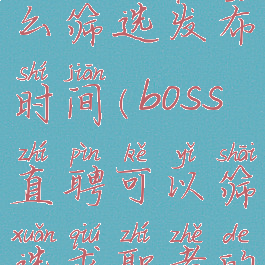 么筛选发布
shí jiān
时间(boss
zhí pìn kě yǐ shāi
直聘可以筛
xuǎn qiú zhí zhě de
选求职者的